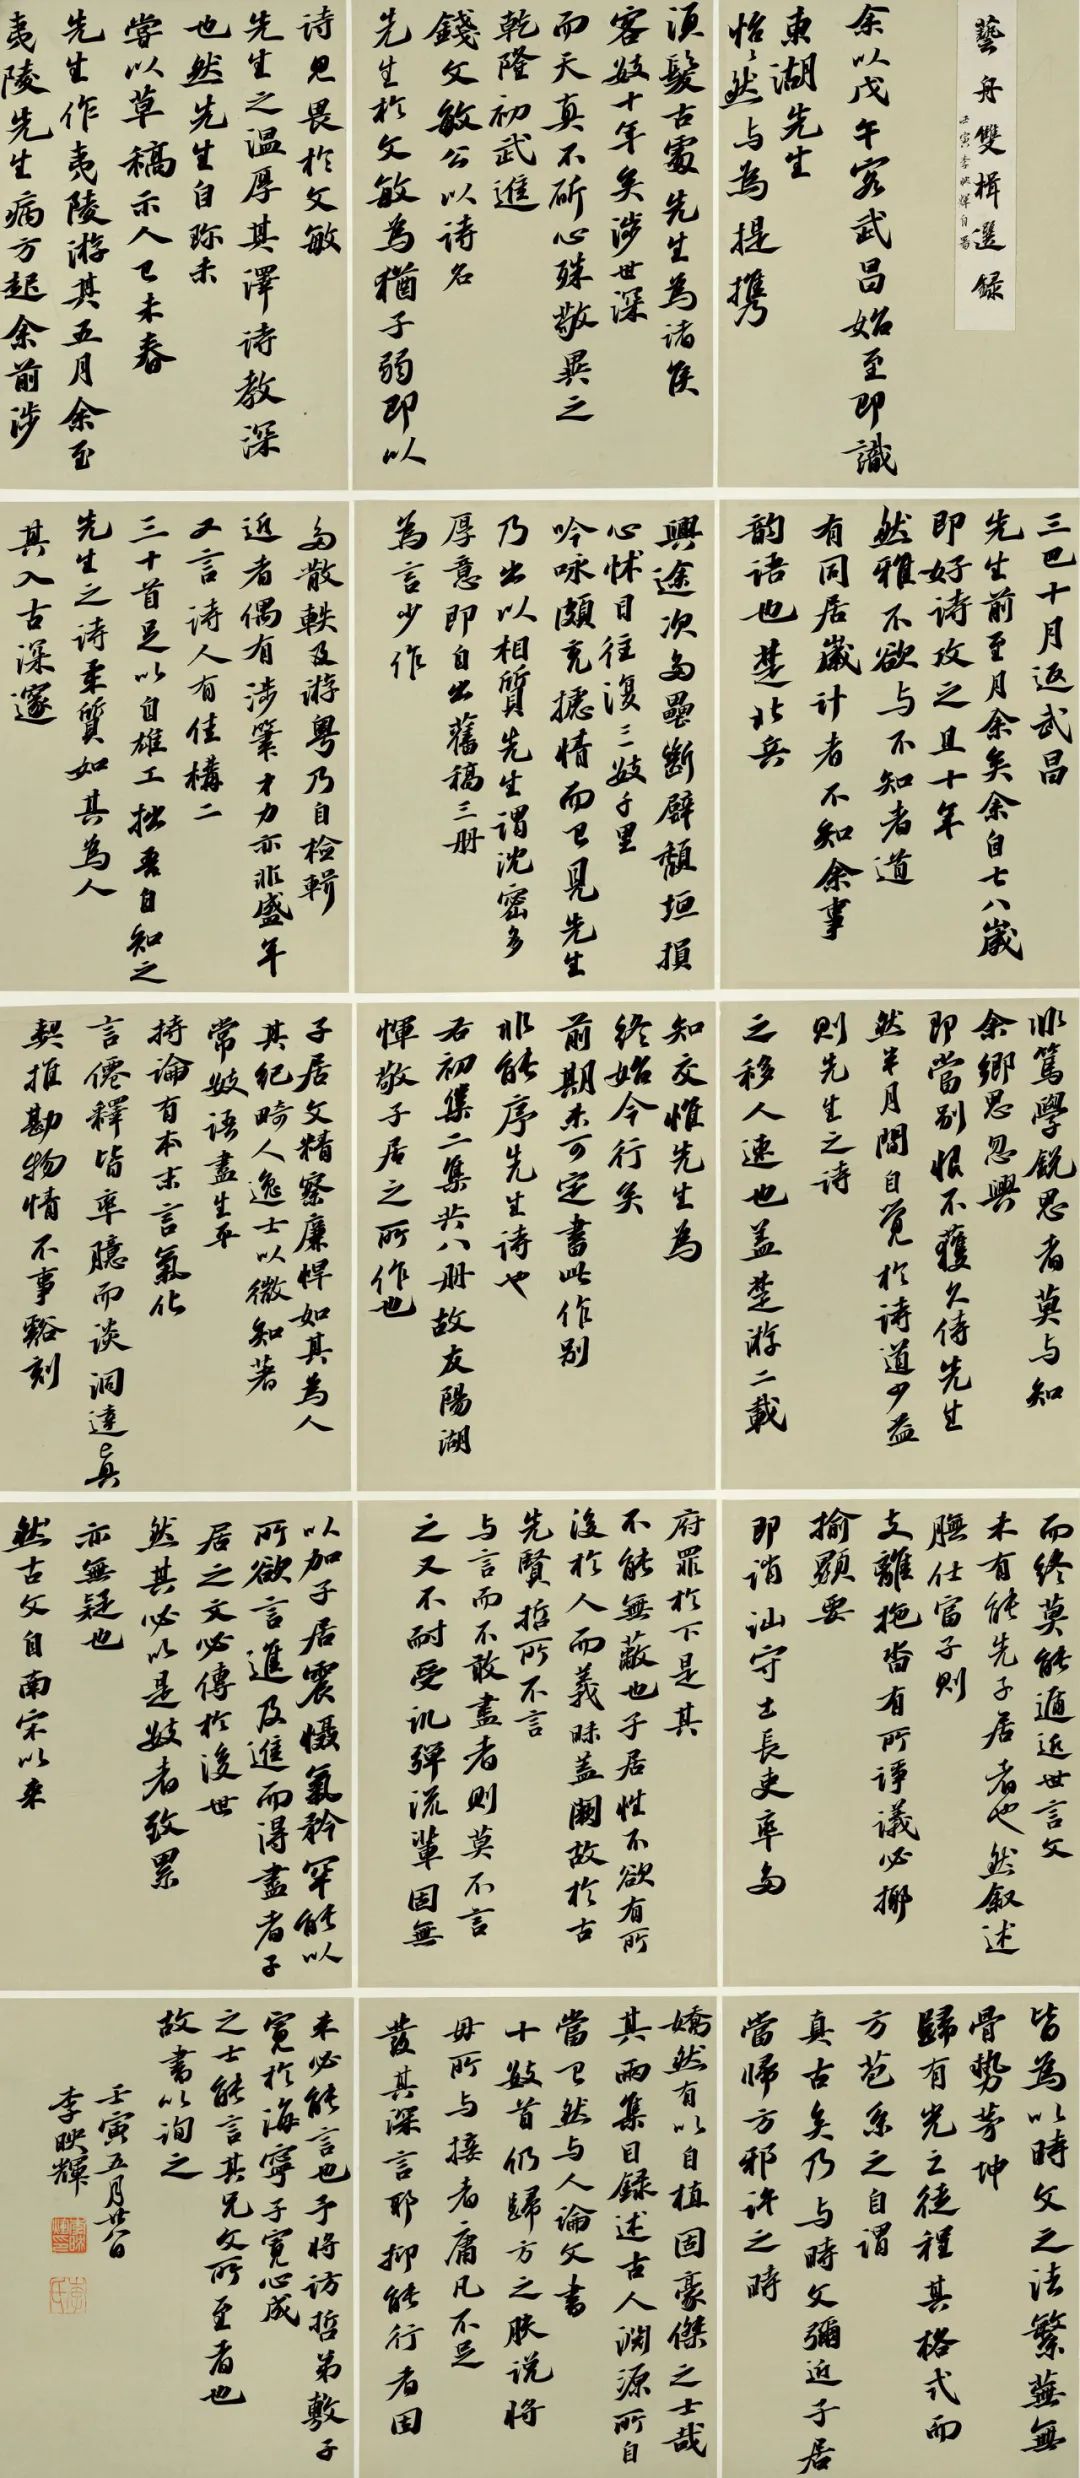 藝舟雙楫選録
壬寅李映輝自署
余以戊午客武昌始至即識
東湖先生
怡怡然与為提携
須髮古靄先生為諸侯
客數十年矣涉世深
而天真不斫心殊敬異之
乾隆初武進
錢文敏公以詩名
先生於文敏為猶子弱即以
詩見畏於文敏
先生之温厚其澤詩教深
也然先生自珎未
嘗以草稿示人己未春
先生作夷陵游其五月余至
夷陵先生病方起余前涉
三巴十月返武昌
先生前至月余矣余自七八歲
即好詩攻之且十年
然雅不欲与不知者道
有同居歲計者不知余事
韵语也楚北兵
興途次多壘斷壁頹垣損
心怵目往復三數千里
吟咏頗充攄情而已見先生
乃出以相質先生謂沈密多
厚意即自出舊稿三册
為言少作
多散軼及游粤乃自檢輯
近者偶有涉筆才力亦非盛年
又言詩人有佳構二
三十首足以自雄工拙吾自知之
先生之詩柔質如其為人
其入古深邃
非篤學銳思者莫与知
余鄉思忽興
即當别恨不獲久侍先生
然半月間自覺於詩道少益
則先生之詩
之移人速也盖楚游二載
知交惟先生為
終始今行矣
前期未可定書此作别
非能序先生诗也
右初集二集共八册故友陽湖
惲敬子居之所作也
子居文精察廉悍如其為人
其紀畸人逸士以微知著
常數语盡生平
持論有本末言氣化
言僊釋皆率臆而談洞達真
契推勘物情不事谿刻
而終莫能遁近世言文
未有能先子居者也然叙述
膴仕富子則
支離拖沓有所諍議必揶
揄顯要
即誚訕守土長吏率多
府罪於下是其
不能無蔽也子居性不欲有所
後於人而義昧盖闕故於古
先賢哲所不言
与言而不敢盡者則莫不言
之又不耐受訊彈流輩固無
以加子居震慑氣矜罕能以
所欲言進及進而得盡者子
居之文必傳於後世
然其必以是數者致累
亦無疑也
然古文自南宋以来
皆為以時文之法繁蕪無
骨勢茅坤
歸有光之徒程其格式而
方苞系之自謂
真古矣乃与時文彌近子居
當歸方邪許之時
矯然有以自植固豪傑之士哉
其兩集目録述古人淵源所自
當已然与人論文書
十數首仍歸方之膚説将
毋所与接者庸凡不足
發其深言耶抑能行者固
未必能言也予将訪哲弟敷子
寬於海寧子寬心成
之士能言其兄文所至者也
故書以詢之
壬寅五月廿八日
李映輝